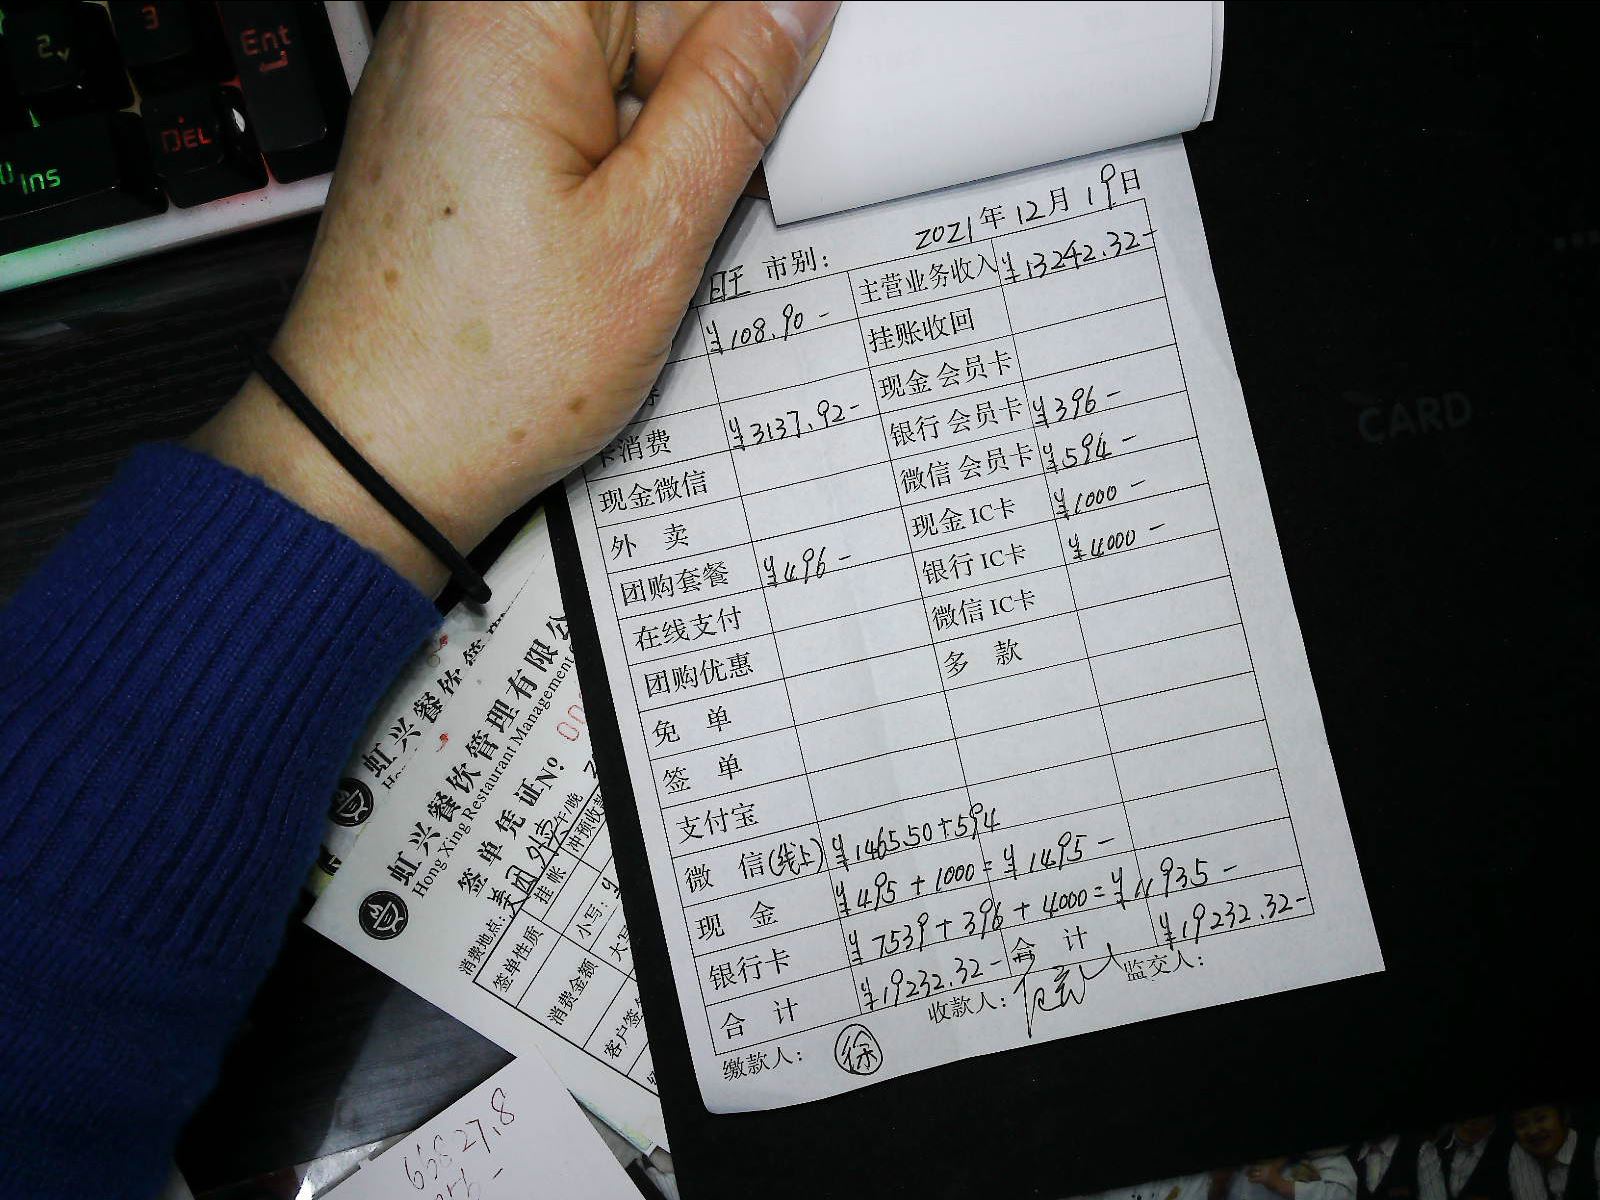 2
3
Ent
DEL
Ins
CARD
2021年12月19日
旺 市别：
¥108.90- 主营业务收入 ¥13242.32-
挂账收回
现金会员卡
卡消费 ¥3137.92- 银行会员卡 ¥396-
现金微信 微信会员卡 ¥594-
外 卖 现金IC卡 ¥1000-
团购套餐 ¥496- 银行IC卡 ¥4000-
在线支付 微信IC卡
团购优惠 多 款
免 单
签 单
支付宝
微 信(线上) ¥1465.50+594
现 金 ¥495+1000=¥1495-
银行卡 ¥7539+396+4000=¥11935-
合 计 ¥19232.32- 合 计 ¥19232.32-
缴款人： 徐 收款人： 监交人：
虹兴餐饮
虹兴餐饮管理有限公
Hong Xing Restaurant Management
签单凭证 No
消费地点: 美团外卖 午/晚
签单性质 挂帐 冲预收款
消费金额 小写: ¥
大写
客户签
66827.8